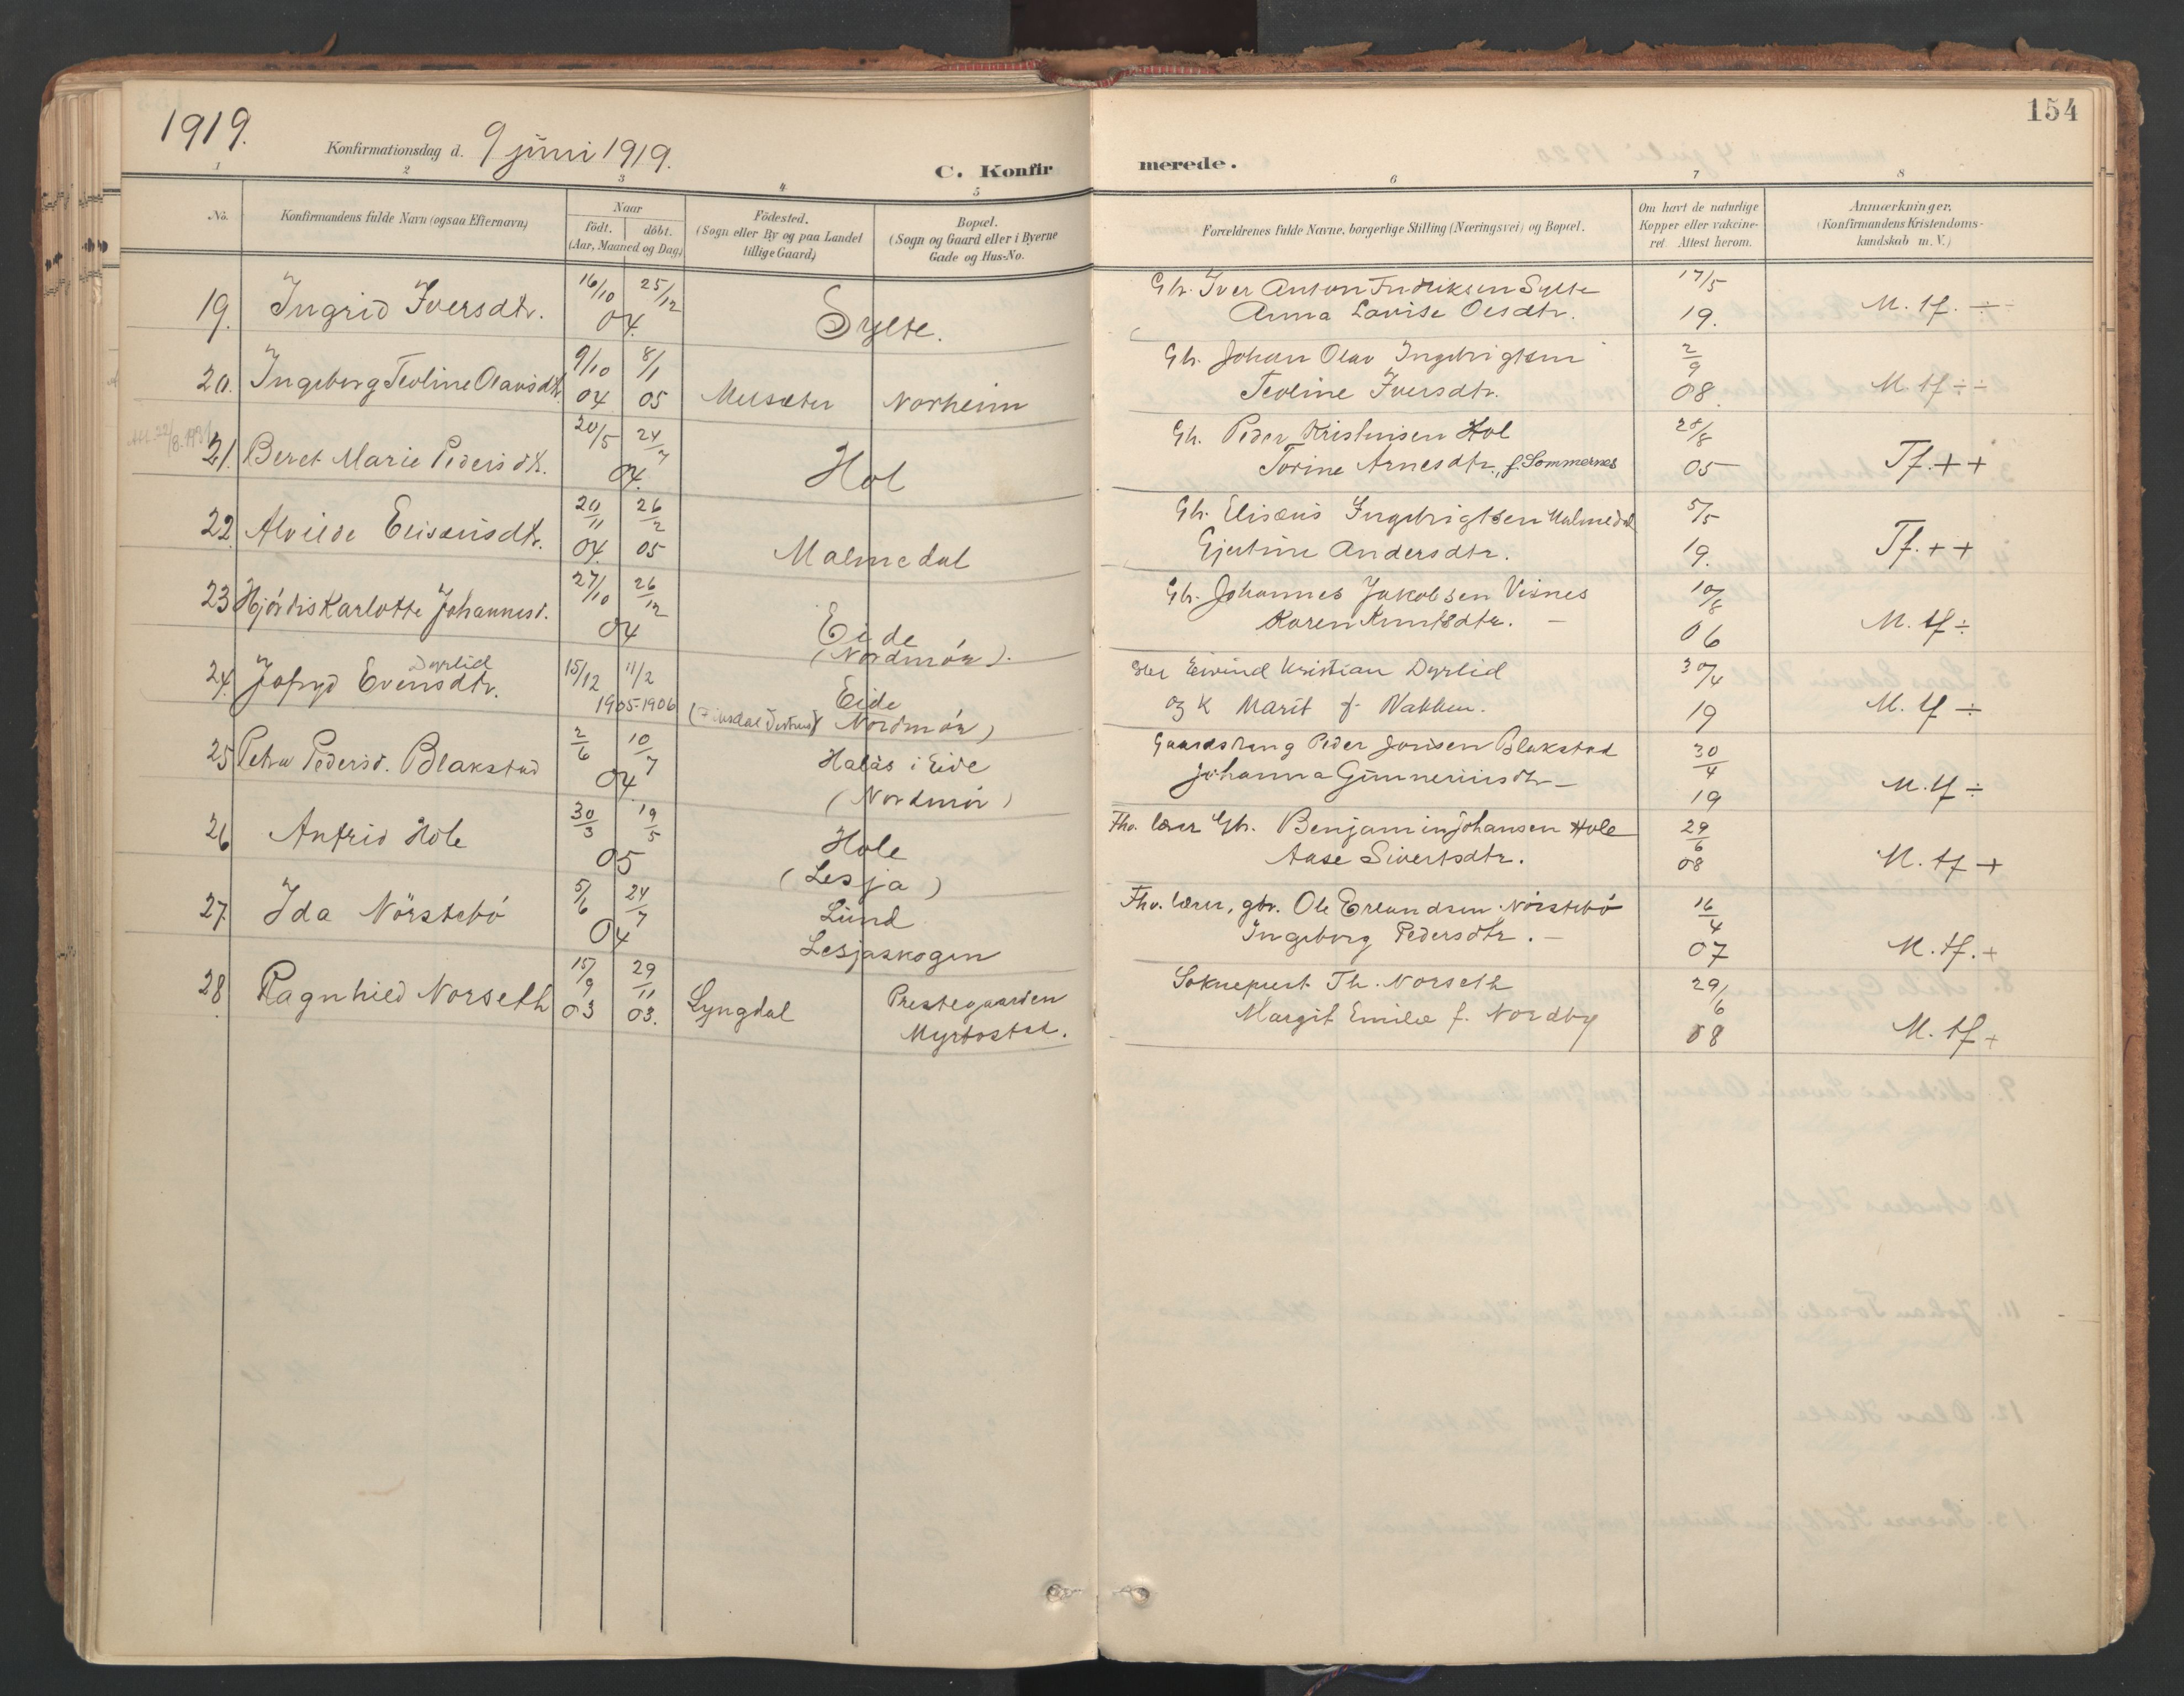 154
1919.
Konfirmationsdag d. 9 juni 1919.
C. Konfirmerede.
1 2 3 4 5 6 7 8
No.
Konfirmandens fulde Navn (ogsaa Efternavn)
Naar
födt. döbt.
(Aar, Maaned og Dag)
Födested.
(Sogn eller By og paa Landet
tillige Gaard)
Bopæl.
(Sogn og Gaard eller i Byerne
Gade og Hus-No.
Forældrenes fulde Navne, borgerlige Stilling (Næringsvei) og Bopæl.
Om havt de naturlige
Kopper eller vakcine-
ret. Attest herom.
Anmærkninger.
(Konfirmandens Kristendoms-
kundskab m. V.)
19. Ingrid Iversdtr. 16/10 25/12 04. Sylte.
Gbr. Iver Anton Fredriksen Sylte
Anna Lovise Olsdtr.
17/5 19. M. tf. ÷
20. Ingeborg Teoline Olavsdtr. 9/10 04 8/1 05 Melsæter Norheim
Gbr. Johan Olav Ingebrigtsen
Teoline Iversdtr.
2/9 08. M tf ÷ ÷
21. Beret Marie Pedersdtr. 20/5 24/7 04. Hol
Gbr. Peder Kristensen Hol
Torine Arnesdtr., f. Sommernes
28/8 05 Tf. + +
22. Alvilde Eliseusdtr. 20/11 04. 26/2 05 Malmedal
Gbr. Eliseus Ingebrigtsen Malmedal
Gjertine Andersdtr.
5/5 19. Tf. + +
23 Hjördis Karlotte Johannesd. 27/10 26/12 04 Eide
(Nordmör).
Gbr. Johannes Jakobsen Visnes
Karen Knutsdtr. —
10/8 06 M. tf ÷
24. Jofryd Evensdtr. Dyrlid 15/12 11/2 1905-1906 Eide
Nordmör)
Eivind Kristian Dyrlid
og K Marit f. Nakken.
30/4 19 M. tf ÷
25 Petra Pedersd. Blakstad 2/6 10/7 04 Halås i Eide
(Nordmör)
Peder Jonsen Blakstad
Johanna
30/4 19 M. tf ÷
26 Anfrid Hole 30/3 19/5 05 Hole
(Lesja)
Fhv. lærer Gbr. Benjamin Johansen Hole
Aase Sivertsdtr.
29/6 08 M. tf +
27. Ida Nörstebö 5/6 24/7 04 Lund
Lesjaskogen
Fhv. lærer, gbr. Ole Erlandsen Nörstebö
Ingeborg Pedersdtr. —
16/4 07 M. tf. +
28. Ragnhild Norseth 15/9 03 29/11 03. Lyngdal Prestegaarden
Myrbostad.
Sokneprest Th. Norseth
Margit Emilie f. Nordby
29/6 08 M. tf +